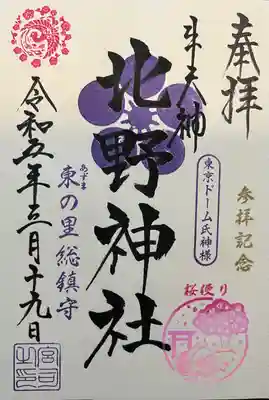 奉拝
牛天神
北野神社
東京ドーム氏神様
参拝記念
桜便り
あずま
東の里総鎮守
令和五年三月十九日